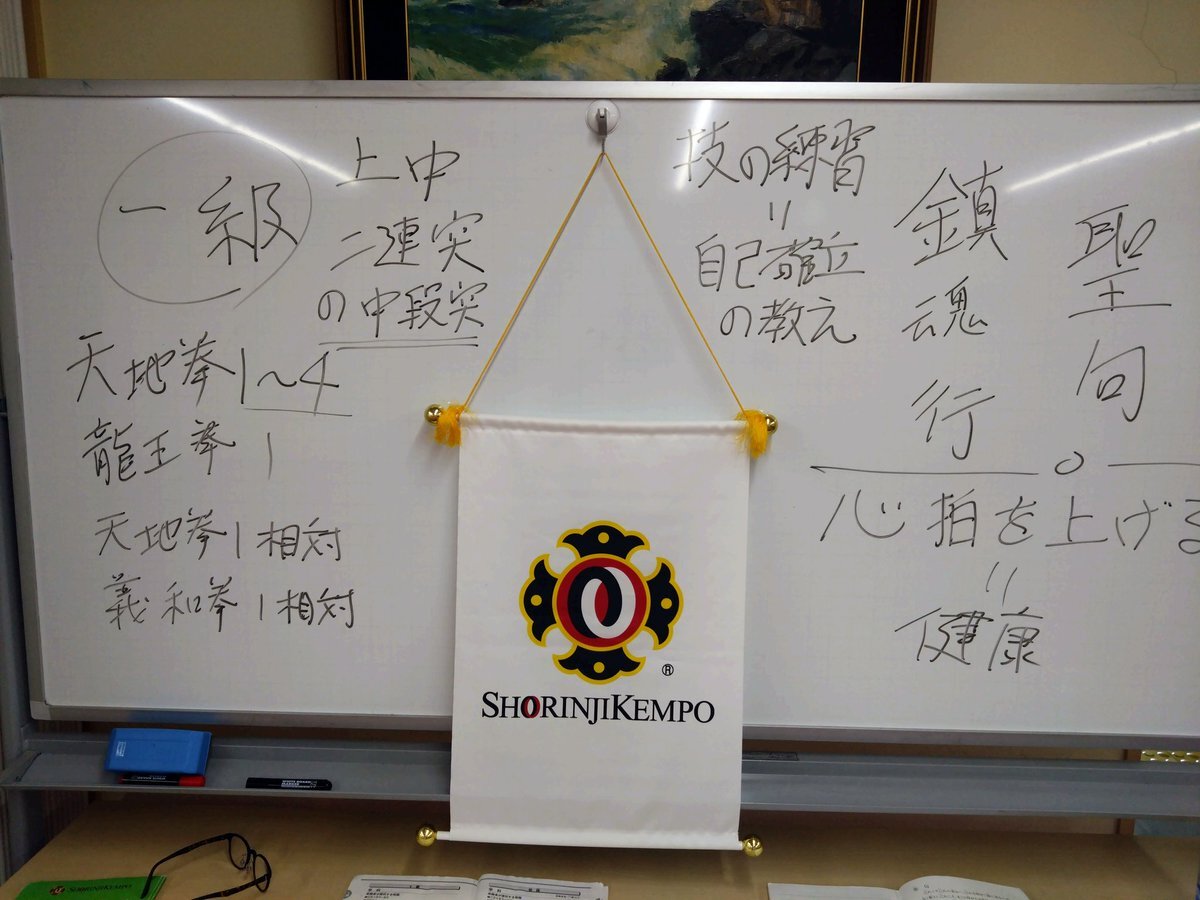 一級
上中
二連突
の中段突
天地拳 1〜4
龍王拳 1
天地拳 1 相対
義和拳 1 相対
技の練習
=
自己確立
の教え
聖句
鎮魂行
心拍を上げる
=
健康
®
SHORINJIKEMPO
SHORINJIKEMPO